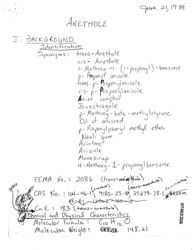 June 21, 1988
ANETHOLE
I. BACKGROUND
Identification
Synonyms: trans-Anethole
cis-Anethole
1-Methoxy-4-(1-propenyl)-benzene
p-Propenyl anisole
trans-p-Propenylanisole
cis-p-Propenylanisole
Anise camphor
Isoestragole
p-Methoxy-beta-methylstyrene
Oil of aniseed
p-Propenylphenyl methyl ether
Nauli gum
Acintene
Arizole
Monasirup
4-Methoxy-1-propenylbenzene
FEMA No.: 2086 (trans-
CAS No.: 104-46-1 4180-23-8 25679-28-1
CoE: 183 (trans-
Chemical and Physical Characteristics
Molecular Formula:
Molecular Weight: 148.21